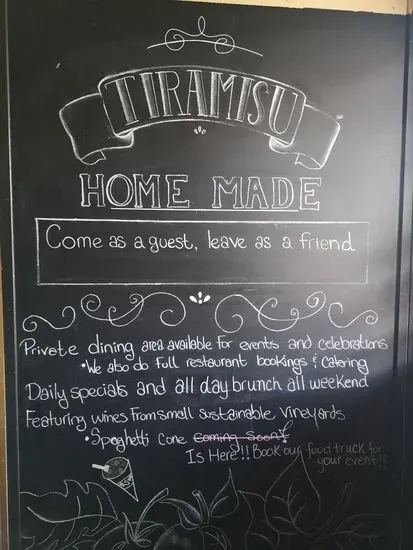 TIRAMISU
HOME MADE
Come as a guest, leave as a friend
Private dining area available for events and celebrations
•We also do full restaurant bookings & catering
Daily specials and all day brunch all weekend
Featuring wines from small sustainable vineyards
•Spaghetti Cone Coming Soon!
Is Here!! Book our food truck for
your event!!